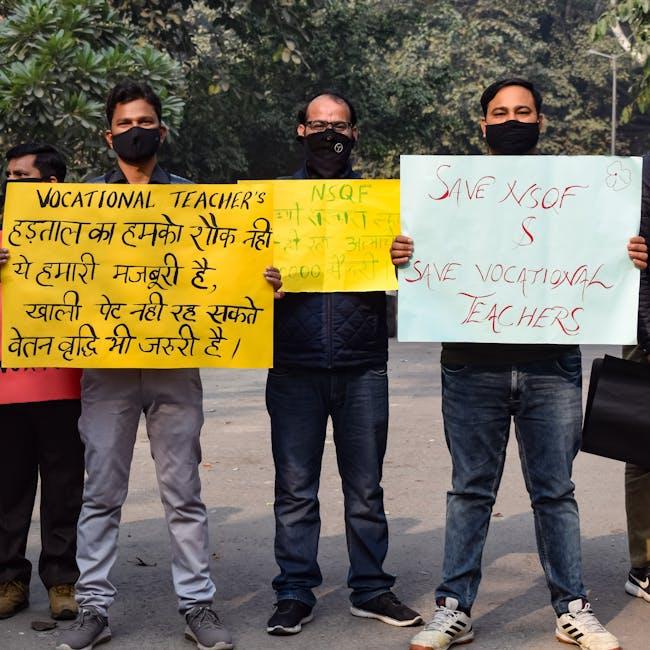 VOCATIONAL TEACHER'S
हड़ताल का हमको शौक नही
ये हमारी मजबूरी है,
खाली पेट नही रह सकते
वेतन वृद्धि भी जरुरी है।
NSQF
SAVE NSQF
&
SAVE VOCATIONAL
TEACHERS